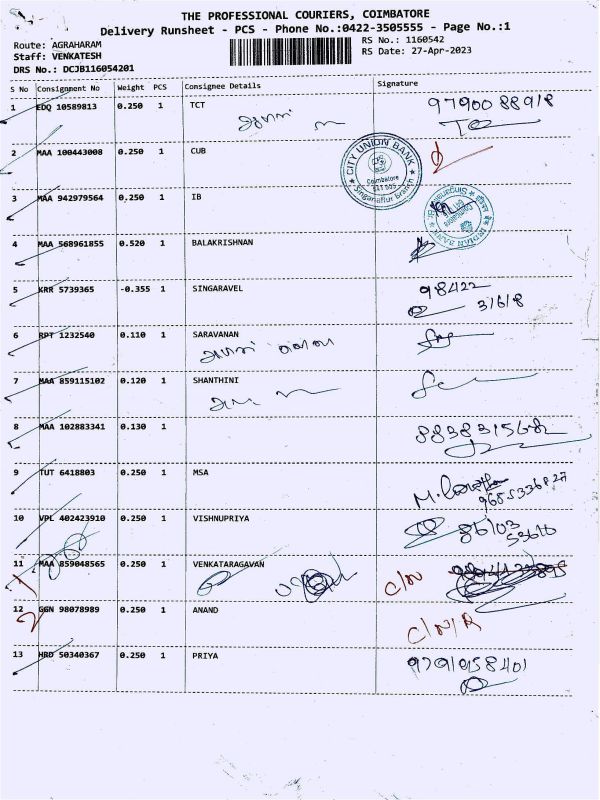 THE PROFESSIONAL COURIERS, COIMBATORE
Delivery Runsheet - PCS - Phone No.:0422-3505555 - Page No.:1
Route: AGRAHARAM
RS No.: 1160542
Staff: VENKATESH
RS Date: 27-Apr-2023
DRS No.: DCJB116054201
S No Consignment No Weight PCS Consignee Details Signature
1 EDQ 10589813 0.250 1 TCT 9790088918
2 MAA 100443008 0.250 1 CUB
CITY UNION BANK
Coimbatore
641 005
Singanallur branch
3 MAA 942979564 0,250 1 IB
INDIAN BANK
4 MAA 568961855 0.520 1 BALAKRISHNAN
5 KRR 5739365 -0.355 1 SINGARAVEL 98422
31618
6 RPT 1232540 0.110 1 SARAVANAN
7 MAA 859115102 0.120 1 SHANTHINI
8 MAA 102883341 0.130 1
9 TUT 6418803 0.250 1 MSA
10 VPL 402423910 0.250 1 VISHNUPRIYA
11 MAA 859048565 0.250 1 VENKATARAGAVAN C/N
12 GGN 98078989 0.250 1 ANAND C/N/R
13 HRD 50340367 0.250 1 PRIYA 9791958401